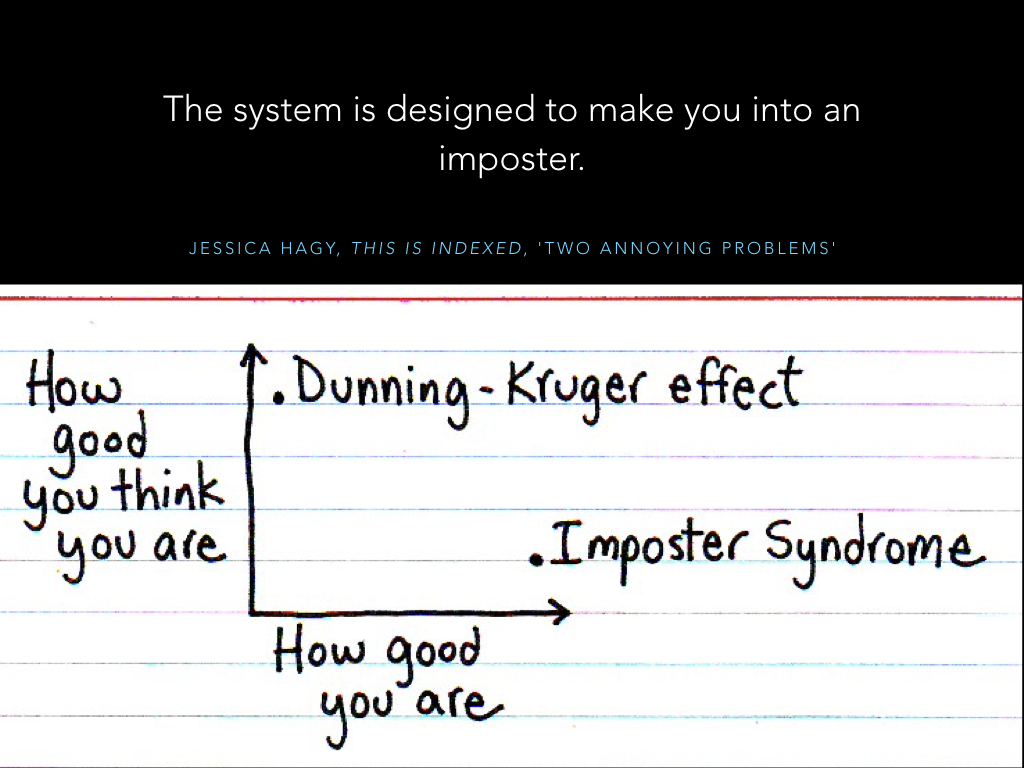 The system is designed to make you into an
imposter.
JESSICA HAGY, THIS IS INDEXED, 'TWO ANNOYING PROBLEMS'
How
good
you think
you are
.Dunning-Kruger effect
.Imposter Syndrome
How good
you are